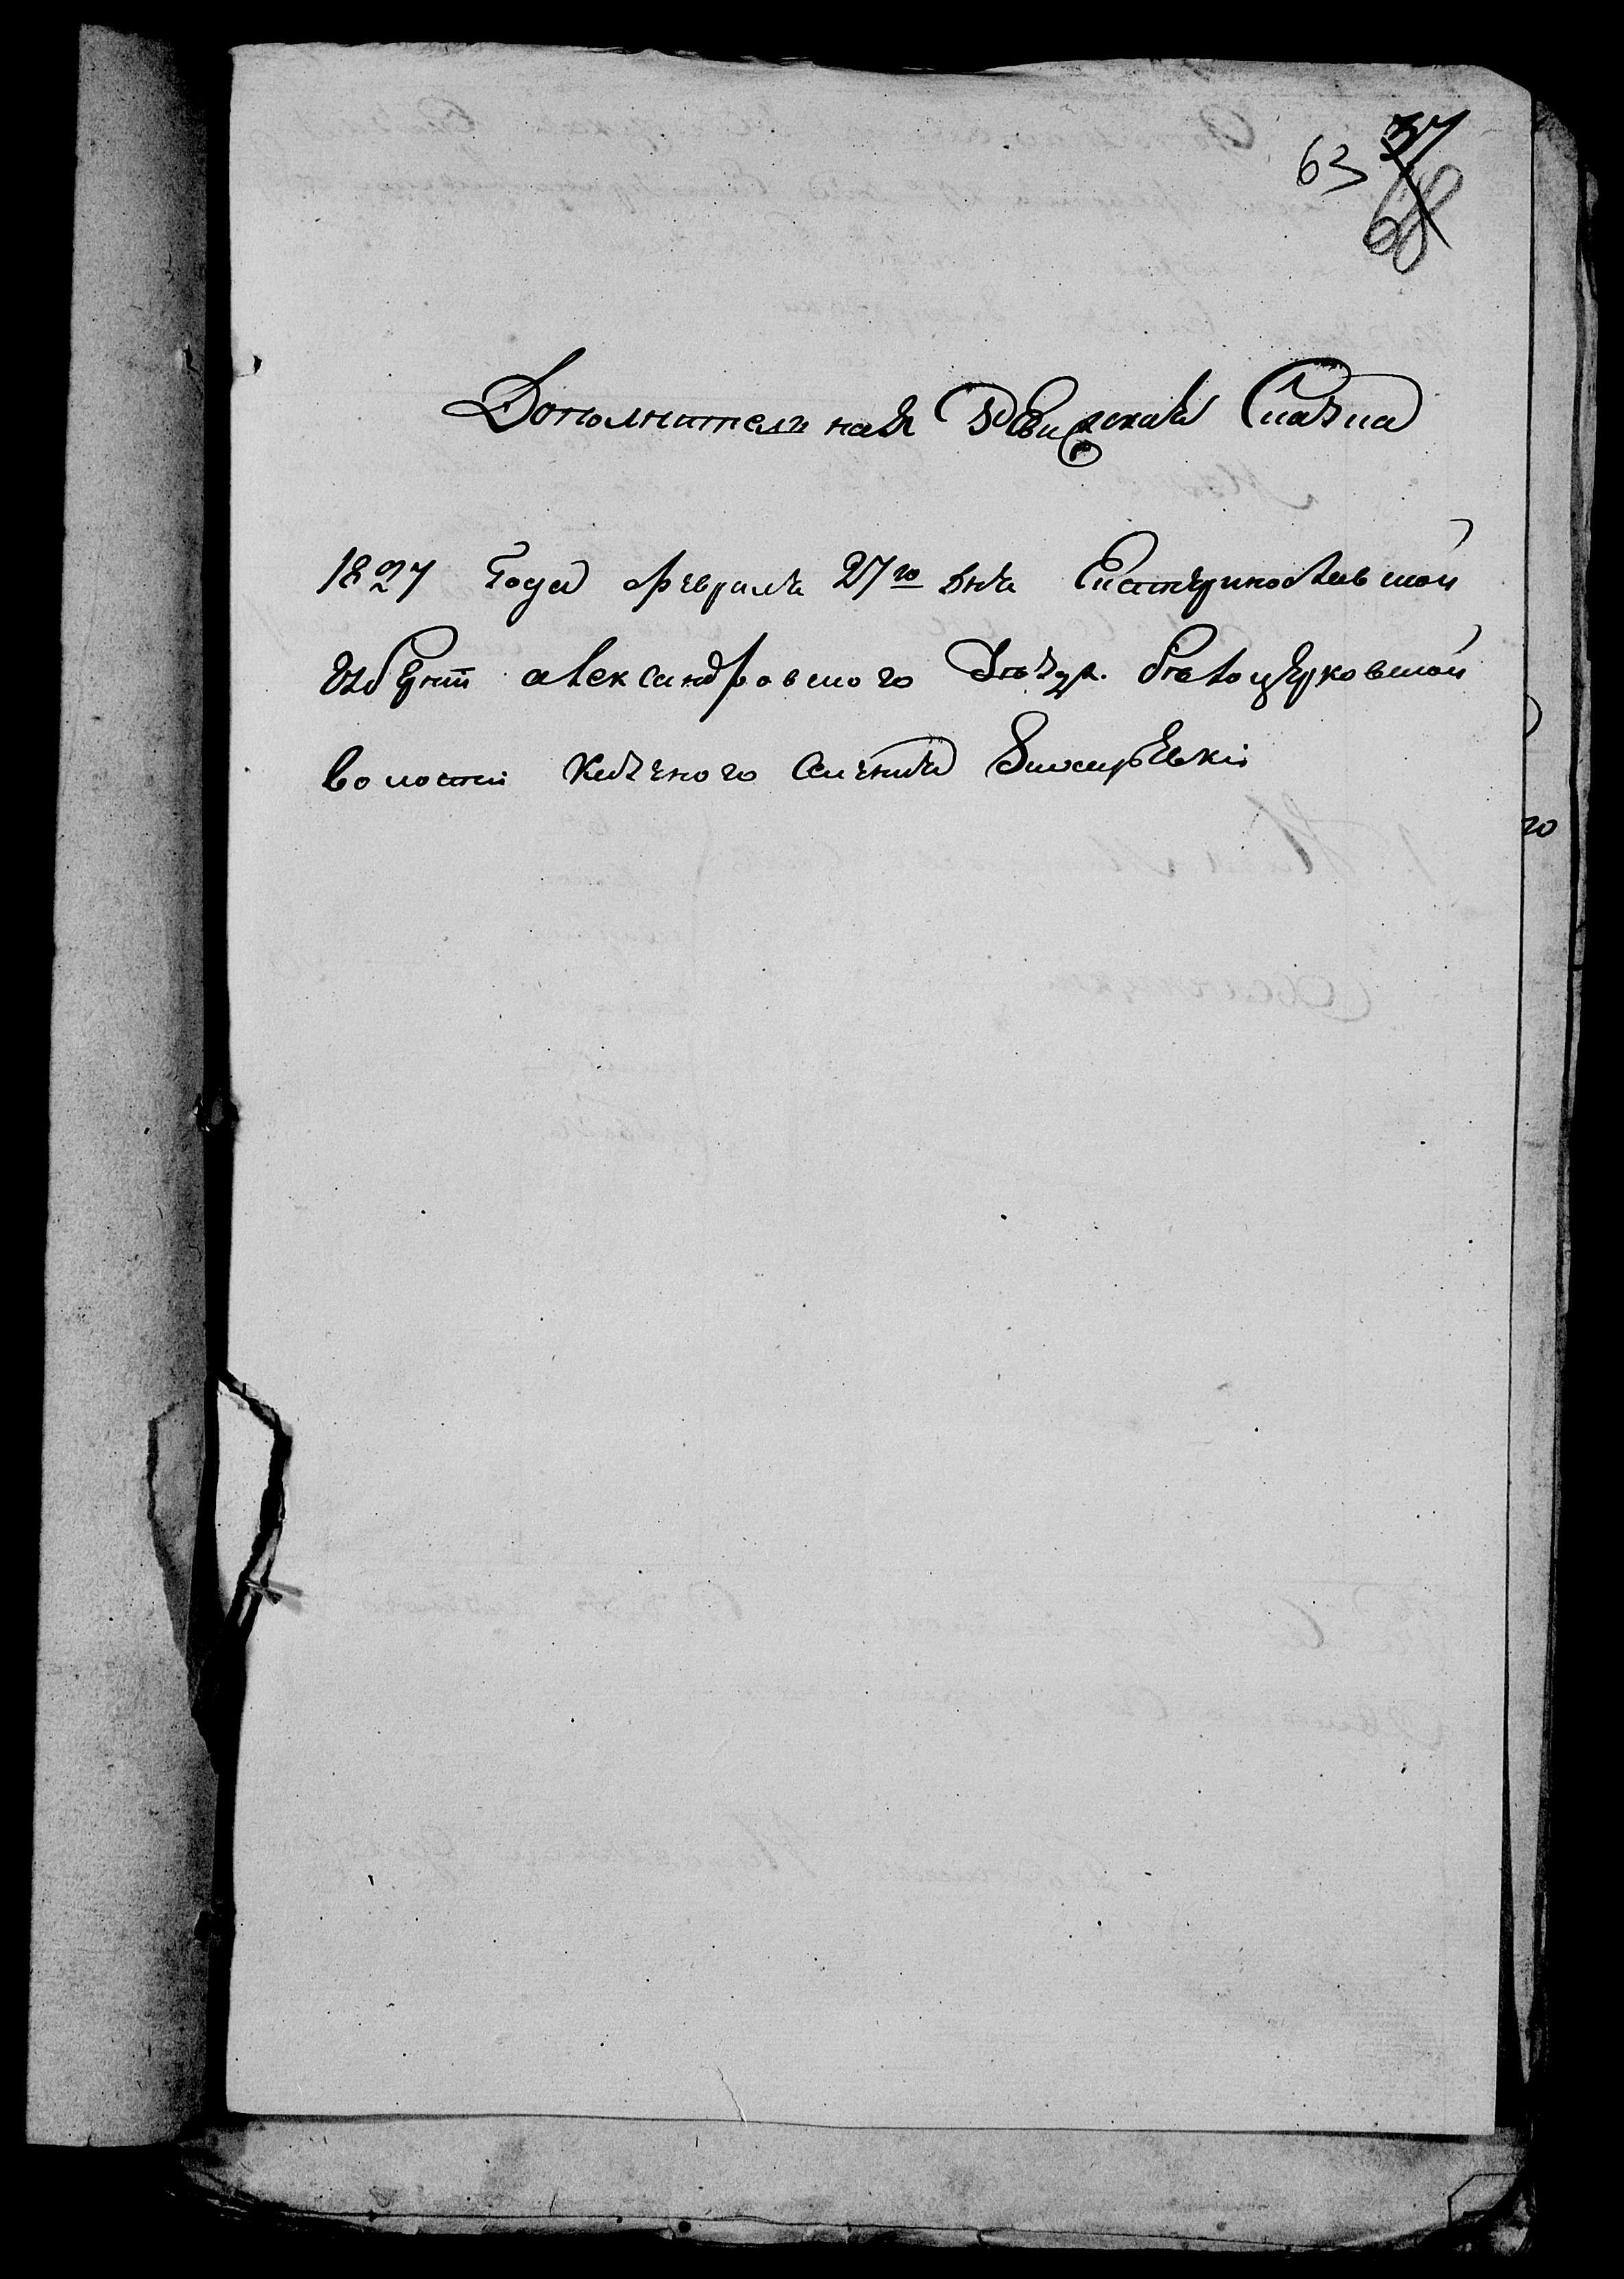 63 37
68
Дополнительная Ревизская Сказка
1827 Года февраля 27го дня Екатеринославской
Губерніи александровского уѣзда. бѣлоцерковской
волости Казенного Селения
го